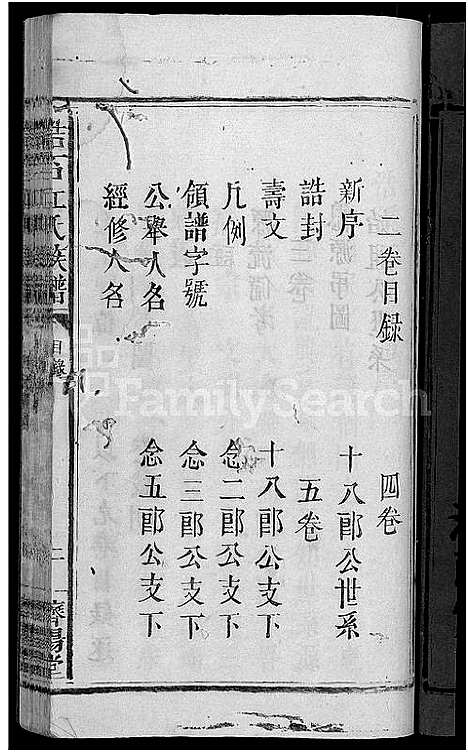 二卷目録
四卷
新序
十八郎公世系
誥封
五卷
壽文
十八郎公支下
凡例
念二郎公支下
領譜字號
念三郎公支下
公舉人名
念五郎公支下
經修人名
江氏族譜
目錄
二
濟陽堂
FamilySearch